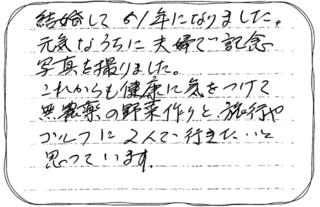 結婚して51年になりました。
元気なうちに夫婦で記念
写真を撮りました。
これからも健康に気をつけて
無農薬の野菜作りと、旅行や
ゴルフに2人で行きたいと
思っています。